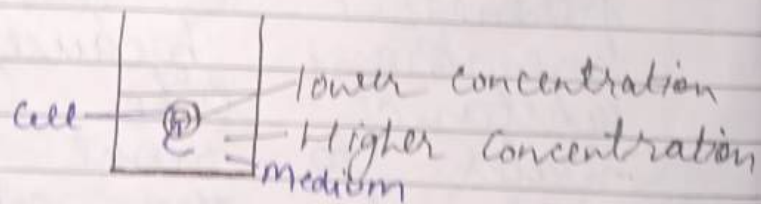 lower concentration
Cell
Higher concentration
medium